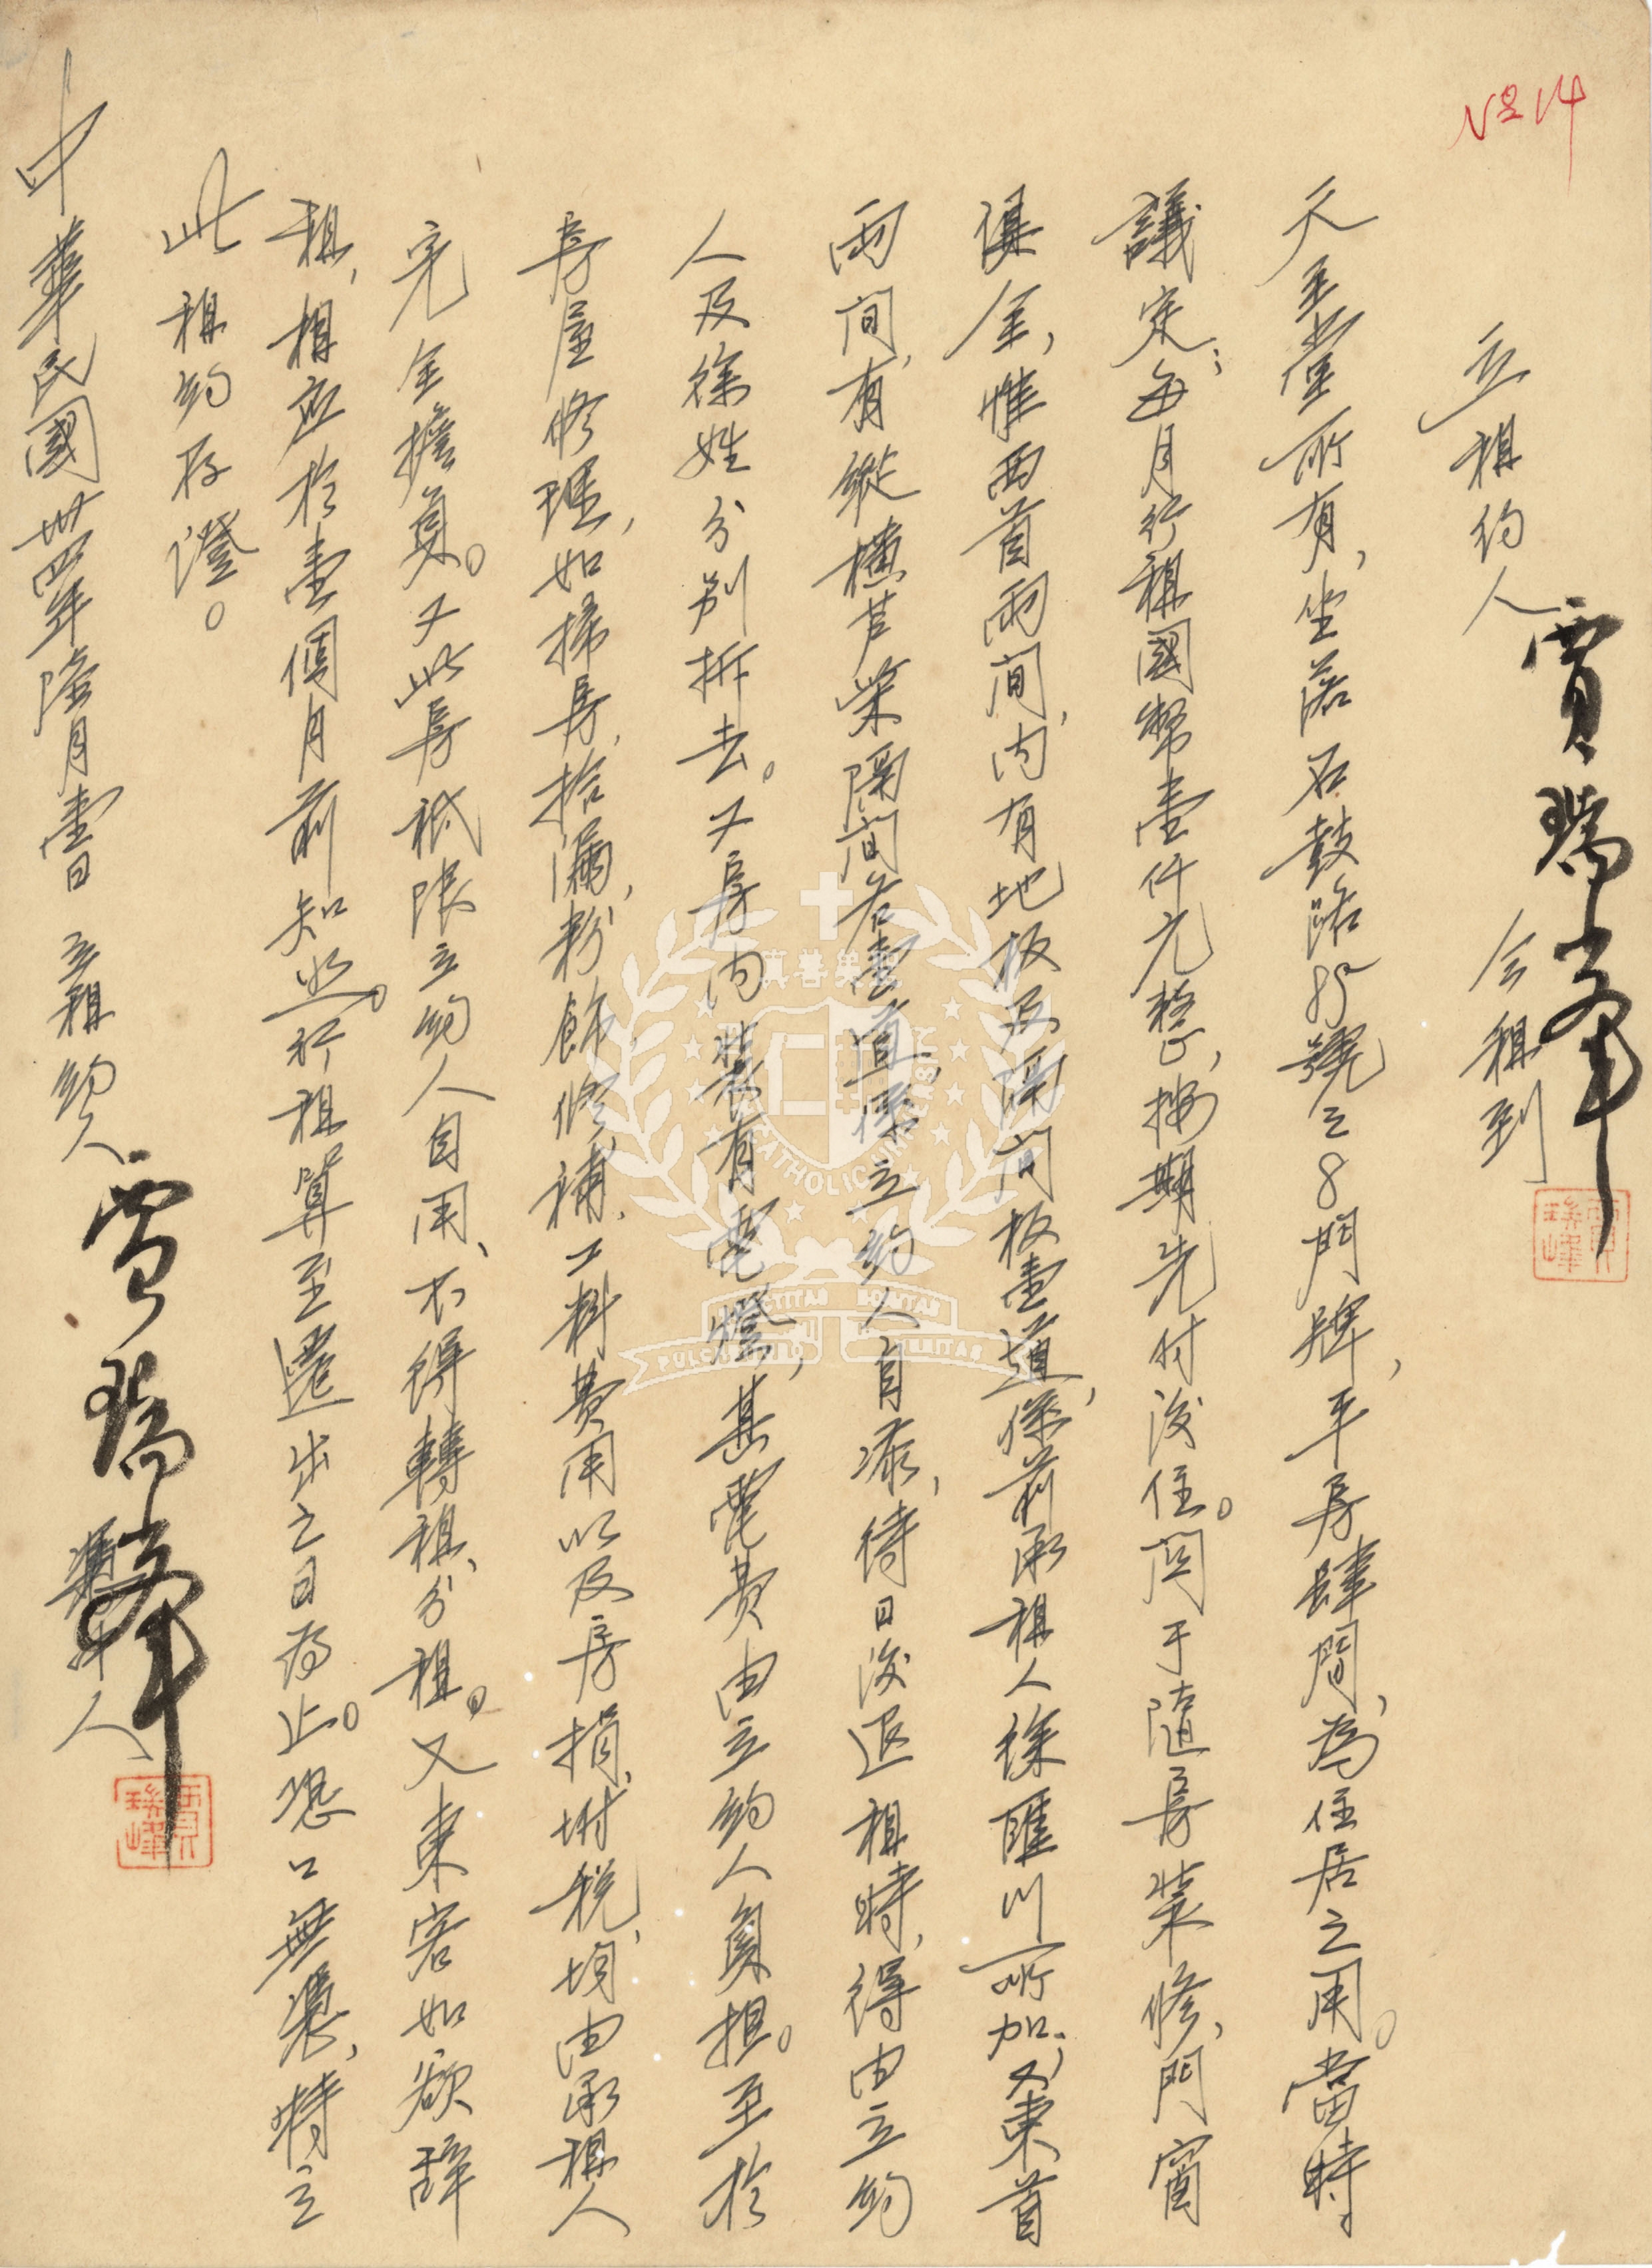 No 14
立租約人 賈瑞峯 今租到
天主堂所有，坐落石鼓路85號之8門牌，平房肆間，為住居之用。當時
議定：每月行租國幣壹仟元整，按期先付後住。關于隨房裝修，門窗
俱全，惟西首兩間，內有地板及隔間板壹道，係前承租人徐匯川所加，又東首
兩間，有縱橫芦柴隔間各壹道，係立約人自添，待日後退租時，得由立約
人及徐姓分別拆去。又房內裝有電燈，其電費由立約人負担。至於
房屋修理，如掃房，拾漏，粉飾，修補，工料費用以及房捐，附税，均由承租人
完全擔負。又此房祗限立約人自用、不得轉租、分租。又東客如欲辭
租，相應於壹個月前知照。行租算至遷出之日為止。恐口無憑，特立
此租約存證。
中華民國卅四年陸月壹日 立租約人 賈瑞峯
人
賈瑞峰
賈瑞峰
真善美聖
CATHOLIC UNIVERSITY
SANCTITAS BONITAS
PULCHRITUDO VERITAS